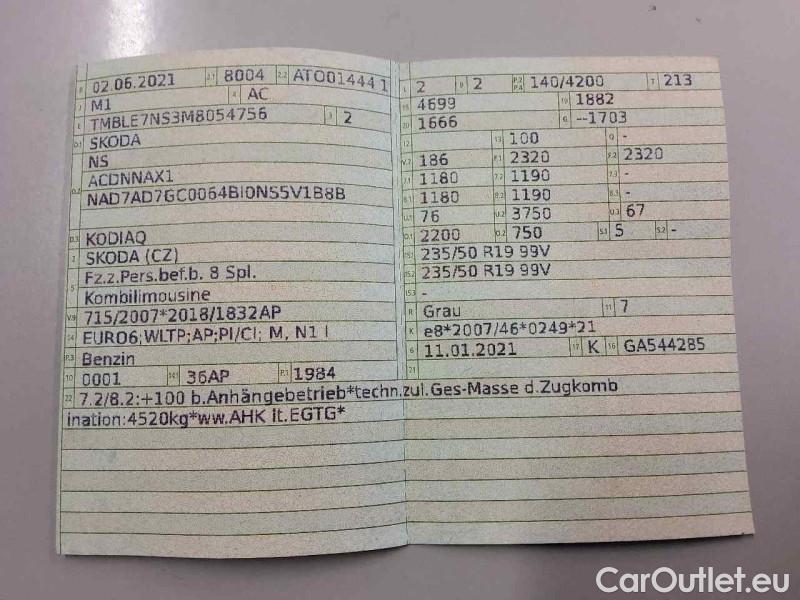 B 02.06.2021 2.1 8004 2.2 ATO01444 1
J M1 4 AC
E TMBLE7NS3M8054756 3 2
D.1 SKODA
NS
ACDNNAX1
D.2 NAD7AD7GC0064BI0NS5V1B8B
D.3 KODIAQ
2 SKODA (CZ)
5 Fz.z.Pers.bef.b. 8 Spl.
Kombilimousine
V.9 715/2007*2018/1832AP
14 EURO6;WLTP;AP;PI/CI; M, N1 I
P.3 Benzin
10 0001 14.1 36AP P.1 1984
22 7.2/8.2:+100 b.Anhängebetrieb*techn.zul.Ges-Masse d.Zugkomb
ination:4520kg*ww.AHK lt.EGTG*
L 2 9 2 P.2 P.4 140/4200 T 213
18 4699 19 1882
20 1666 G --1703
12 13 100 Q -
V.7 186 F.1 2320 F.2 2320
7.1 1180 7.2 1190 7.3 -
8.1 1180 8.2 1190 8.3 -
U.1 76 U.2 3750 U.3 67
O.1 2200 O.2 750 S.1 5 S.2 -
15.1 235/50 R19 99V
15.2 235/50 R19 99V
15.3 -
R Grau 11 7
K e8*2007/46*0249*21
6 11.01.2021 17 K 16 GA544285
21
CarOutlet.eu